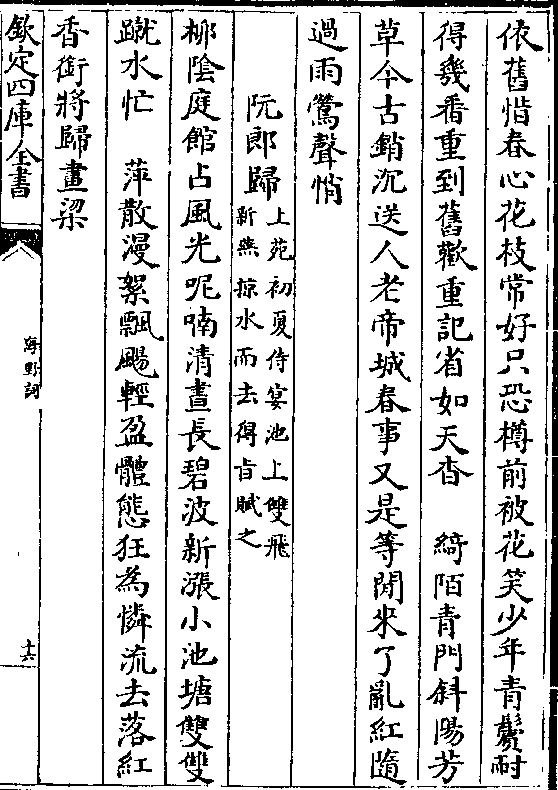 依舊惜春心花枝常好只恐樽前被花笑少年青鬢耐
得幾番重到舊歡重記省如天杳　綺陌青門斜陽芳
草今古銷沉送人老帝城春事又是等閒來了亂紅隨
過雨鶯聲悄
阮郎歸
上苑初夏侍宴池上雙飛
新燕掠水而去得旨賦之
栁陰庭館占風光呢喃清晝長碧波新漲小池塘雙雙
蹴水忙　萍散漫絮飄颺輕盈體態狂為憐流去落紅
香銜將歸畫梁
欽定四庫全書
海野詞
十六